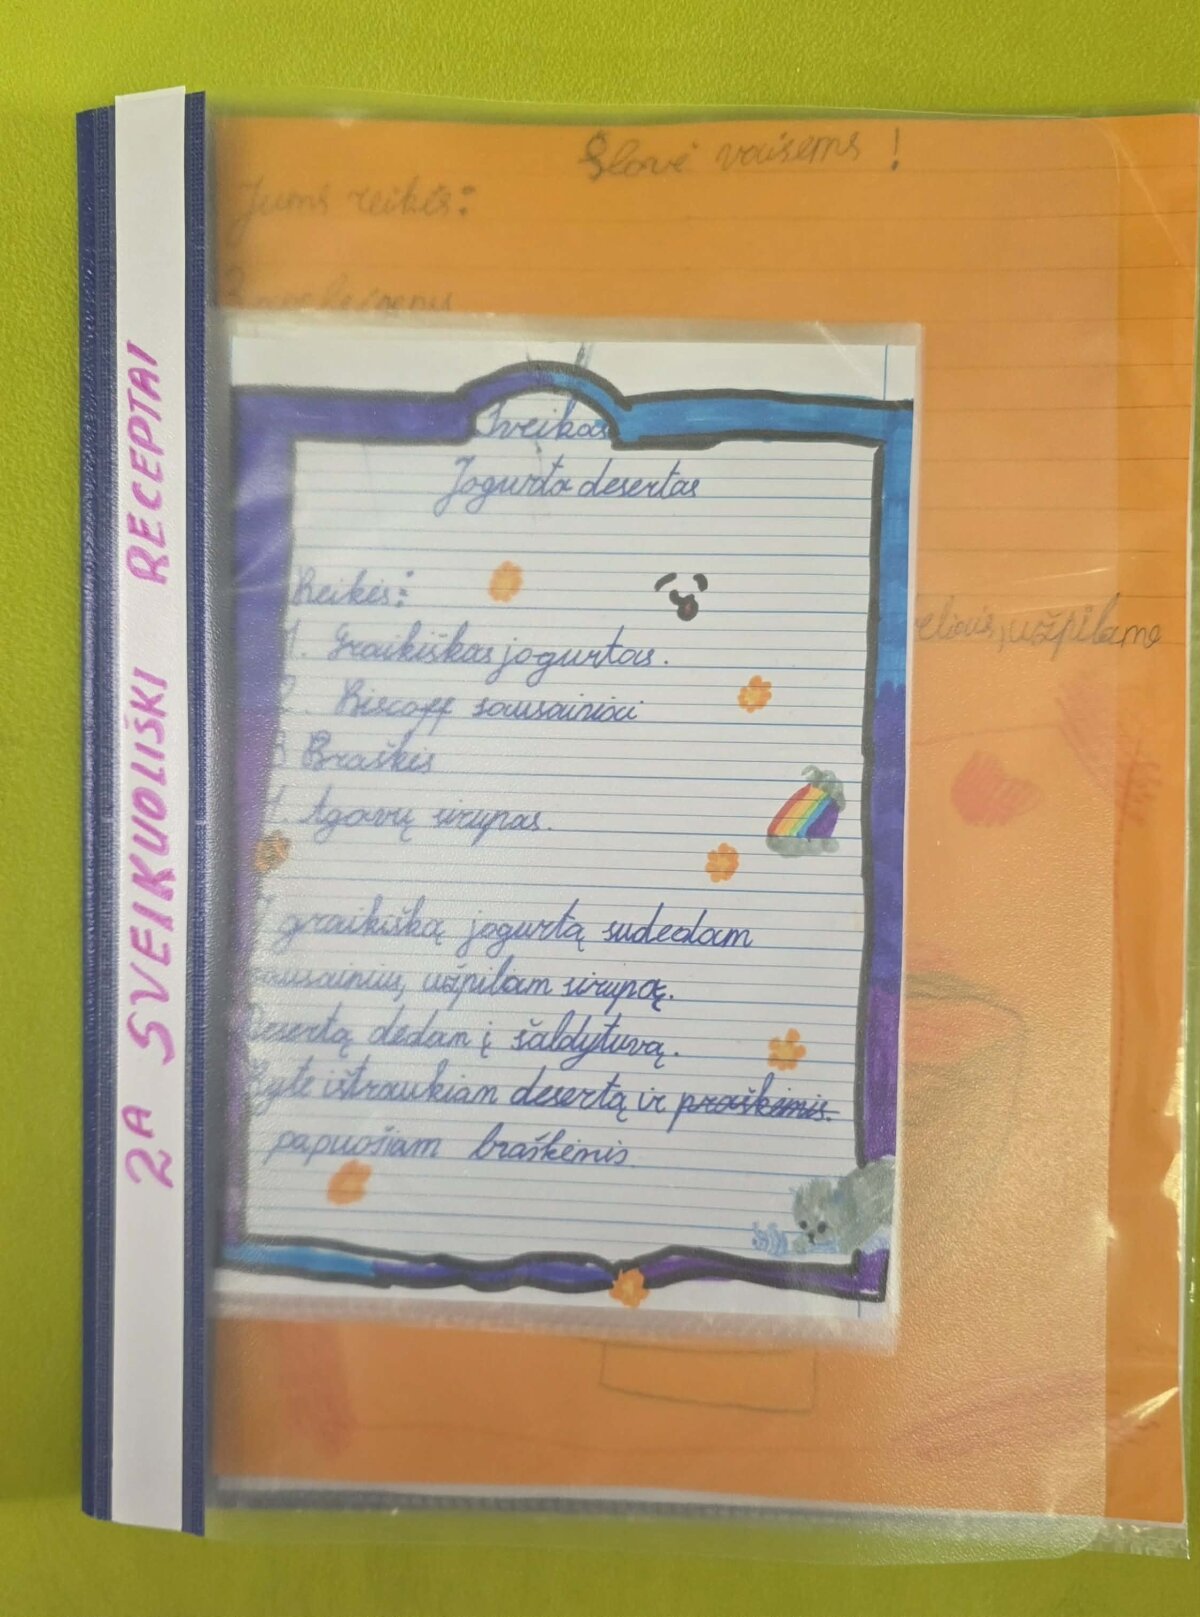 2A SVEIKUOLIŠKI RECEPTAI
Slovė vaisems !
Jums reikės:
Sveikas
Jogurto desertas
Reikės:
1. Graikiškas jogurtas.
2. Biscoff sausainiai
3 Braškės
4. Agavų sirupas.
Į graikišką jogurtą sudedam
sausainius, užpilam sirupą.
Desertą dedam į šaldytuvą.
Ryte ištraukiam desertą ir praškėmis.
papuošiam braškėmis
užpilame